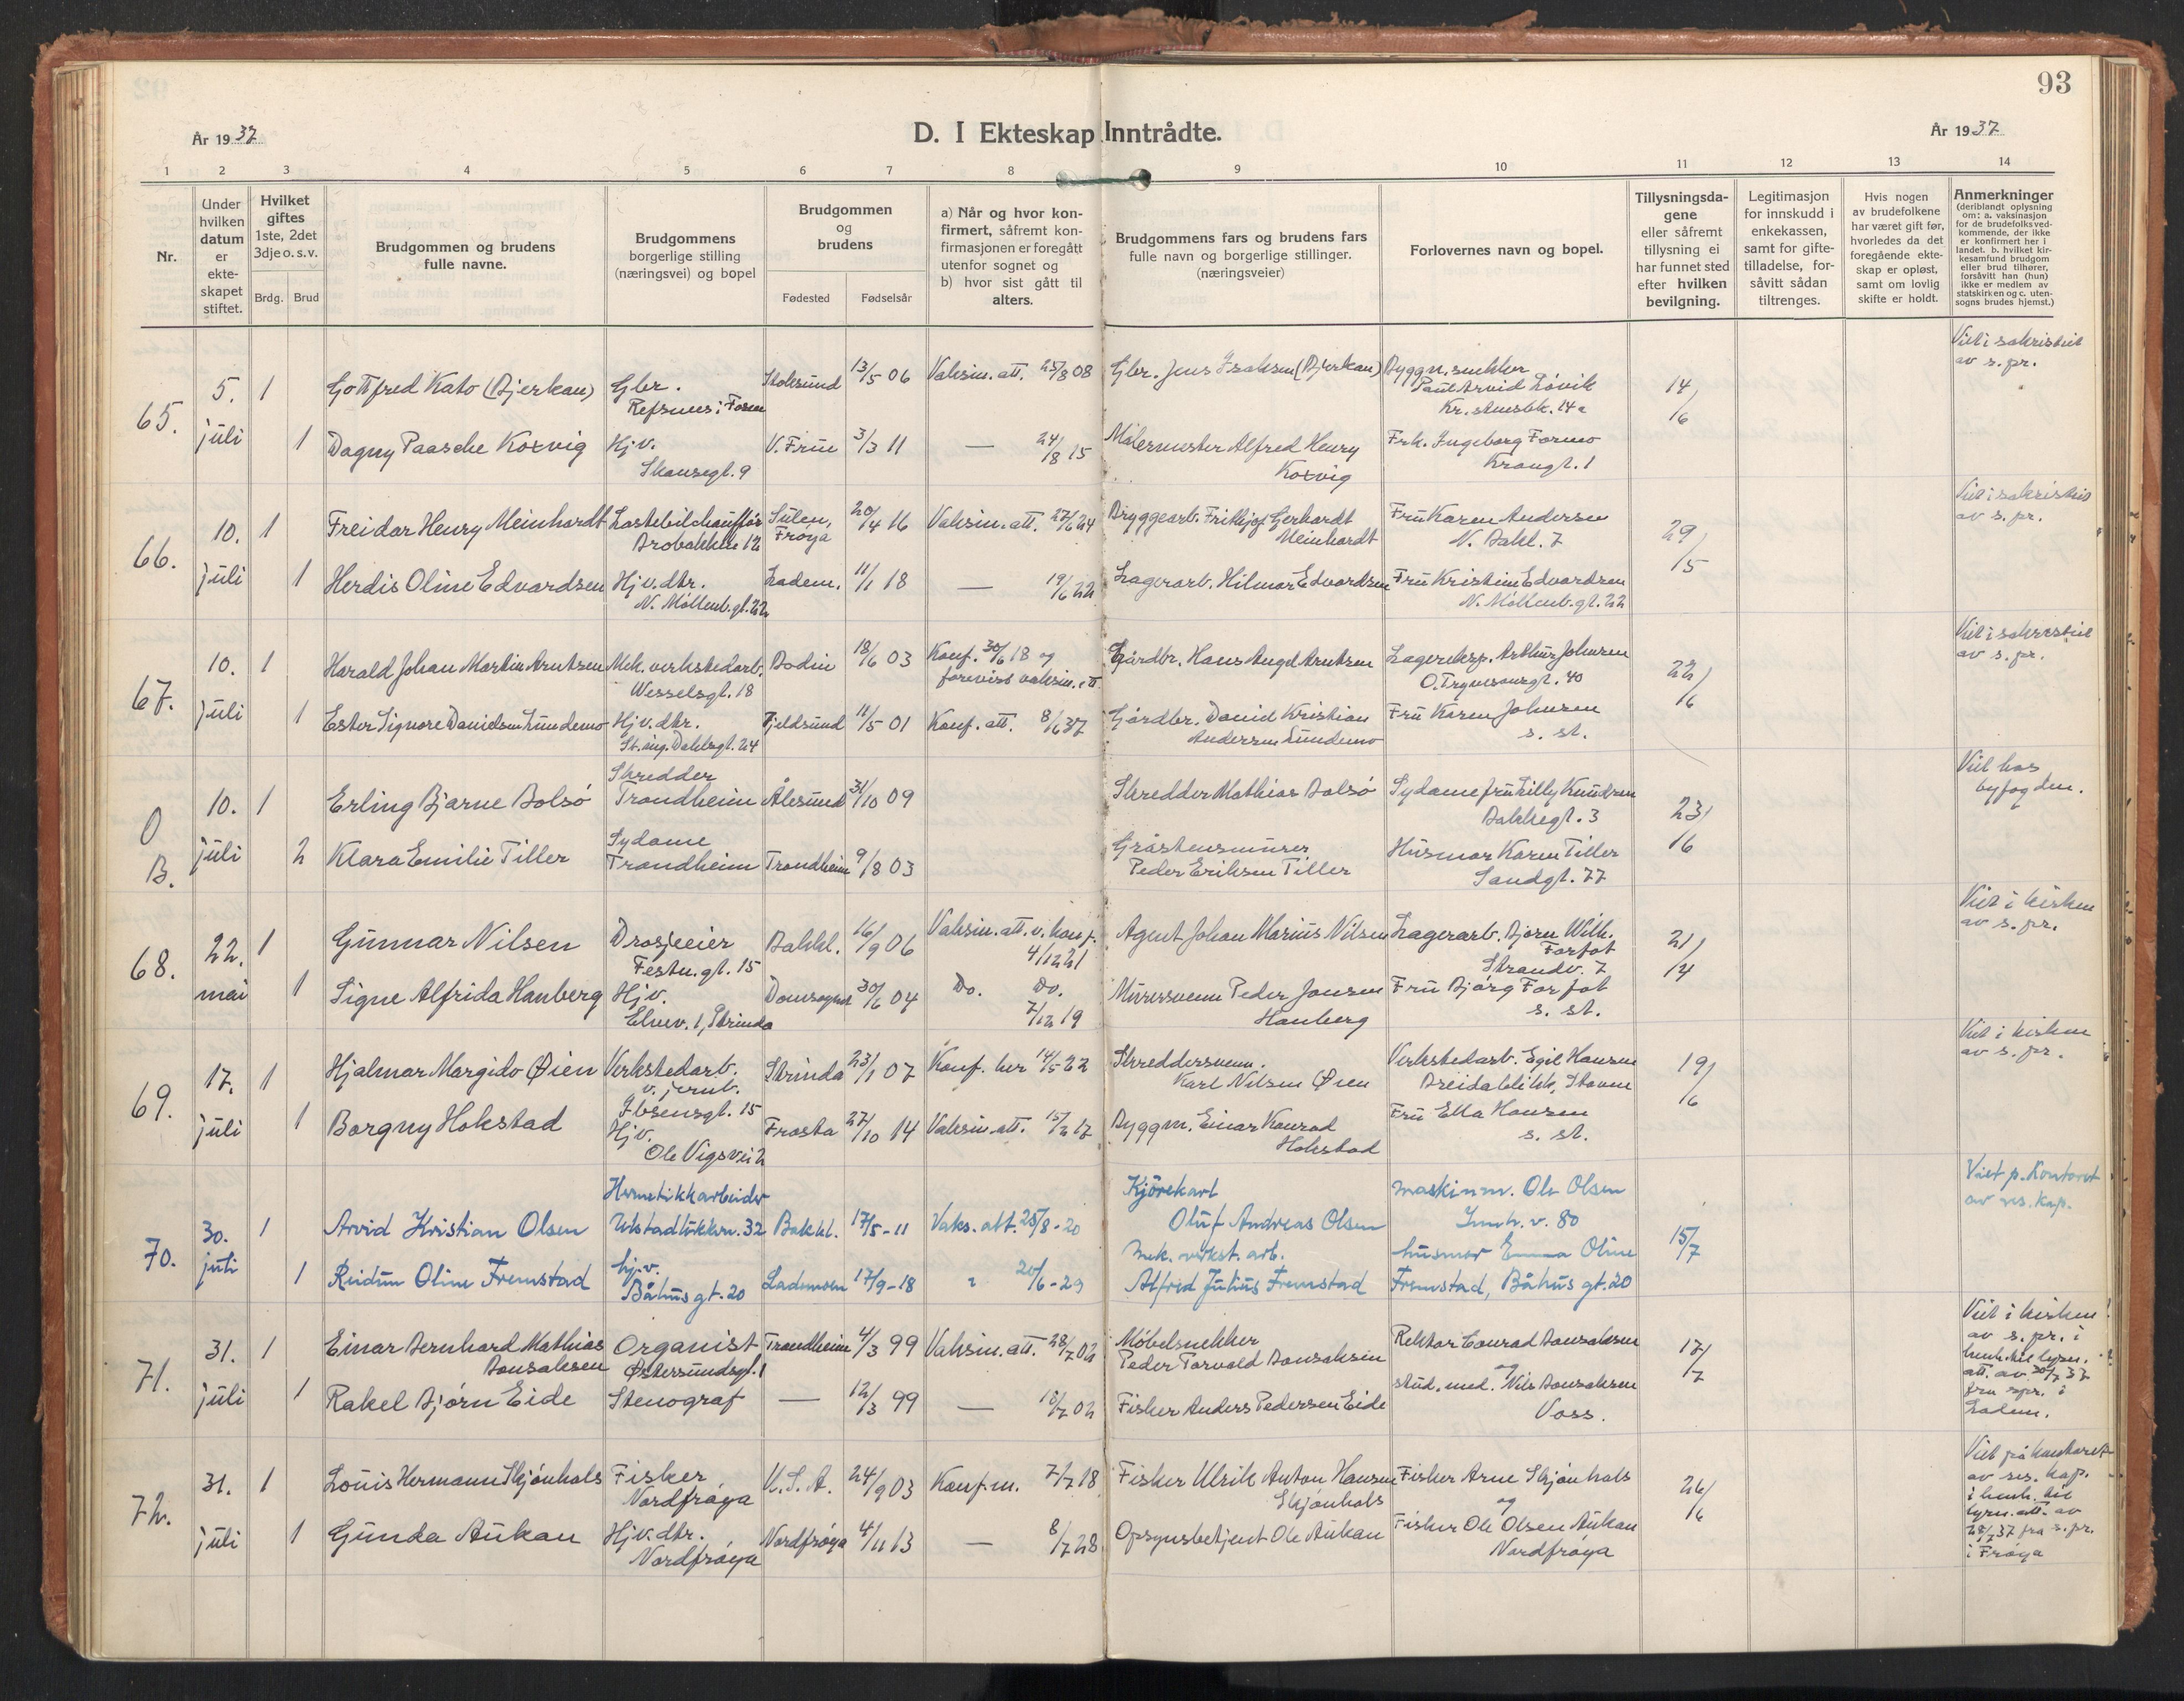 93
År 1937
D. I Ekteskap Inntrådte.
År 1937
1 2 3 4 5 6 7 8 9 10 11 12 13 14
Nr.
Under hvilken datum er ekteskapet stiftet.
Hvilket giftes 1ste, 2det 3dje o. s. v.
Brdg. Brud
Brudgommen og brudens fulle navne.
Brudgommens borgerlige stilling (næringsvei) og bopel
Brudgommen og brudens
Fødested Fødselsår
a) Når og hvor konfirmert, såfremt konfirmasjonen er foregått utenfor sognet og
b) hvor sist gått til alters.
Brudgommens fars og brudens fars fulle navn og borgerlige stillinger. (næringsveier)
Forlovernes navn og bopel.
Tillysningsdagene eller såfremt tillysning ei har funnet sted efter hvilken bevilgning.
Legitimasjon for innskudd i enkekassen, samt for giftetilladelse, forsåvitt sådan tiltrenges.
Hvis nogen av brudefolkene har været gift før, hvorledes da det foregående ekteskap er opløst, samt om lovlig skifte er holdt.
Anmerkninger (deriblandt oplysning om: a. vaksinasjon for de brudefolksvedkommende, der ikke er konfirmert her i landet. b. hvilket kirkesamfund brudgom eller brud tilhører, forsåvitt han (hun) ikke er medlem av statskirken og c. utensogns brudes hjemst.)
65. 5. juli
1 Gottfred Kato (Bjerkan) Gbr. Refsnes i Fosen Stoksund 13/5 06 Vaksin. att. 25/8 08 Gbr. Jens Isaksen (Bjerkan) Byggn. snekker Paul Arvid Løvik Kr. stensbk. 14a 14/6 Viet i sakristiet av s. pr.
1 Dagny Paasche Koxvig Hj.v. Skansegt. 9 V. Frue 3/3 11 — 24/8 15 Malermester Alfred Henry Koxvig Frk. Ingeborg Formo Krangt. 1
66. 10. juli
1 Freidar Henry Meinhardt Lastebilchauffør Brobakken 12 Sulen, Frøya 20/4 16 Vaksin. att. 27/6 24 Bryggearb. Frithjof Gerhardt Meinhardt Fru Karen Andersen N. Bakl. 7 29/5 Viet i sakristiet av s. pr.
1 Herdis Oline Edvardsen Hj.v. dtr. N. Møllenb. gt. 22 Ladem. 11/1 18 — 19/6 22 Lagerarb. Hilmar Edvardsen Fru Kristine Edvardsen N. Møllenb. gt. 22
67. 10. juli
1 Harald Johan Martin Arntsen Mek. verkstedarb. Wesselsgt. 18 Bodin 18/6 03 Konf. 30/6 18 og forevist vaksin. att. Gårdbr. Hans Angel Arntsen Lagereksp. Arthur Johnsen O. Trygvesonsgt. 40 22/6 Viet i sakristiet av s. pr.
1 Ester Signore Danielsen Lundemo Hj.v. dtr. St. ing. Dahlsgt. 24 Tjeldsund 11/5 01 Konf. att. 8/6 37 Gårdbr. David Kristian Andersen Lundemo Fru Karen Johnsen s. st.
O B. 10. juli
1 Erling Bjarne Bolsø Skredder Trondheim Ålesund 31/10 09 Skredder Mathias Bolsø Sydame fru Lilly Knudsen Bakkegt. 3 23/6 Viet hos byfogden.
2 Klara Emilie Tiller Sydame Trondheim Trondheim 9/8 03 Gråstensmurer Peder Eriksen Tiller Husmor Karen Tiller Sandgt. 77
68. 22. mai
1 Gunnar Nilsen Drosjeeier Festn. gt. 15 Bakkl. 16/9 06 Vaksin. att. v. konf. 4/12 21 Agent Johan Marius Nilsen Lagerarb. Bjørn Wilh. Forfot Strandv. 7 21/4 Viet i kirken av s. pr.
1 Signe Alfrida Hanberg Hj.v. Elvev. 1, Strinda Domsognet 30/6 04 Do. Do. 7/12 19 Murersvenn Peder Jonsen Hanberg Fru Bjørg Forfot s. st.
69. 17. juli
1 Hjalmar Margido Øien Verkstedarb. v. jernb. Ibsensgt. 15 Strinda 23/1 07 Konf. her 14/5 22 Skreddersvenn. Karl Nilsen Øien Verkstedarb. Egil Hansen Breidablikk, Stavne 19/6 Viet i kirken av s. pr.
1 Borgny Hokstad Hj.v. Ole Vigsvei 2 Frosta 27/10 14 Vaksin. att. 15/2 17 Byggm. Einar Konrad Hokstad Fru Ella Hansen s. st.
70. 30. juli
1 Arvid Kristian Olsen Hermetikkarbeider Ulstadløkken. 32 Bakkl. 17/5-11 Vaks. att. 25/8-20 Kjørekarl Oluf Andreas Olsen maskinm. Ole Olsen Innh. v. 80 15/7 Viet p. Kontoret av res. kap.
1 Reidun Oline Fremstad hj.v. Båhusgt. 20 Lademoen 17/9-18 " 20/6-29 Mek. verkst. arb. Alfred Julius Fremstad husmor Emma Oline Fremstad, Båhus gt. 20
71. 31. juli
1 Einar Bernhard Mathias Bonsaksen Organist Østersundsgt. 1 Trondheim 4/3 99 Vaksin. att. 28/7 02 Møbelsnekker Peder Torvald Bonsaksen Rektor Conrad Bonsaksen og 17/7 Viet i kirken av s. pr. i henh. til lysn. att. av 30/7 37 fra spr. i Ladem.
1 Rakel Bjørn Eide Stenograf — 12/3 99 — 18/7 02 Fisker Anders Pedersen Eide stud. med. Nils Bonsaksen Voss.
72. 31. juli
1 Louis Hermann Skjønhals Fisker Nordfrøya U.S.A. 24/9 03 Konf. m. 7/7 18 Fisker Ulrik Anton Hansen Skjønhals Fisker Arne Skjønhals og 26/6 Viet på kontoret av res. kap. i henh. til lysn. att. av 28/7 37 fra s. pr. i Frøya
1 Gunda Aukan Hj.v. dtr. Nordfrøya Nordfrøya 4/11 13 — 8/7 28 Opsynsbetjent Ole Aukan Fisker Ole Olsen Aukan Nordfrøya